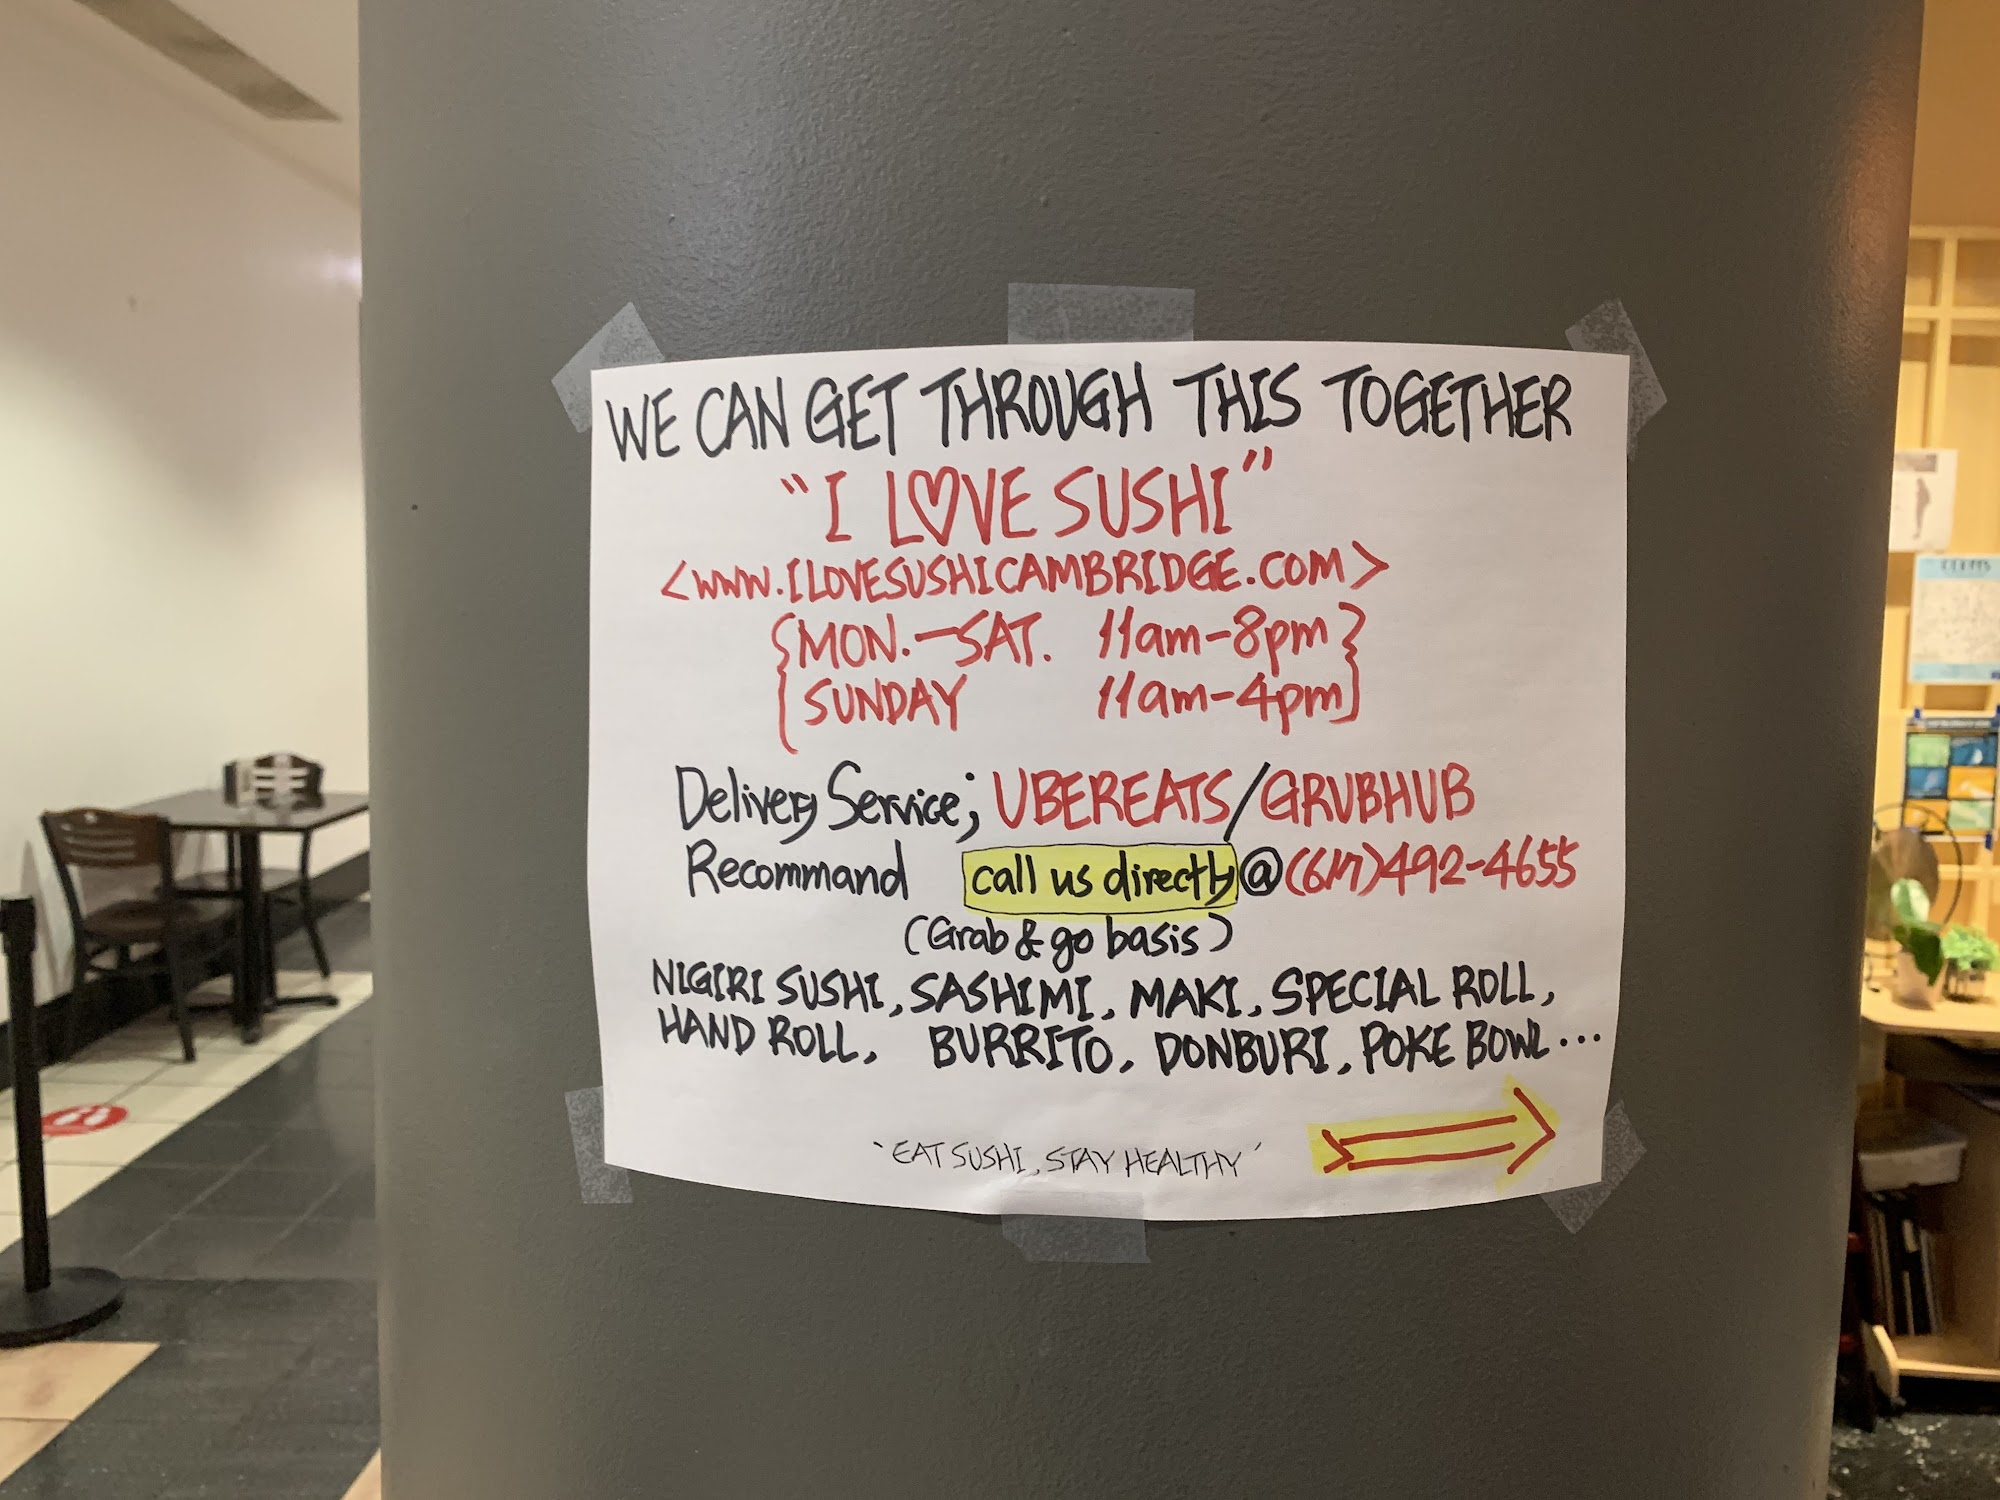 WE CAN GET THROUGH THIS TOGETHER
"I LOVE SUSHI"
<WWW.ILOVESUSHICAMBRIDGE.COM>
{MON.-SAT. 11am-8pm}
{SUNDAY 11am-4pm}
Delivery Service; UBEREATS/GRUBHUB
Recommand call us directly @(617)492-4655
(Grab & go basis)
NIGIRI SUSHI, SASHIMI, MAKI, SPECIAL ROLL,
HAND ROLL, BURRITO, DONBURI, POKE BOWL...
'EAT SUSHI, STAY HEALTHY'